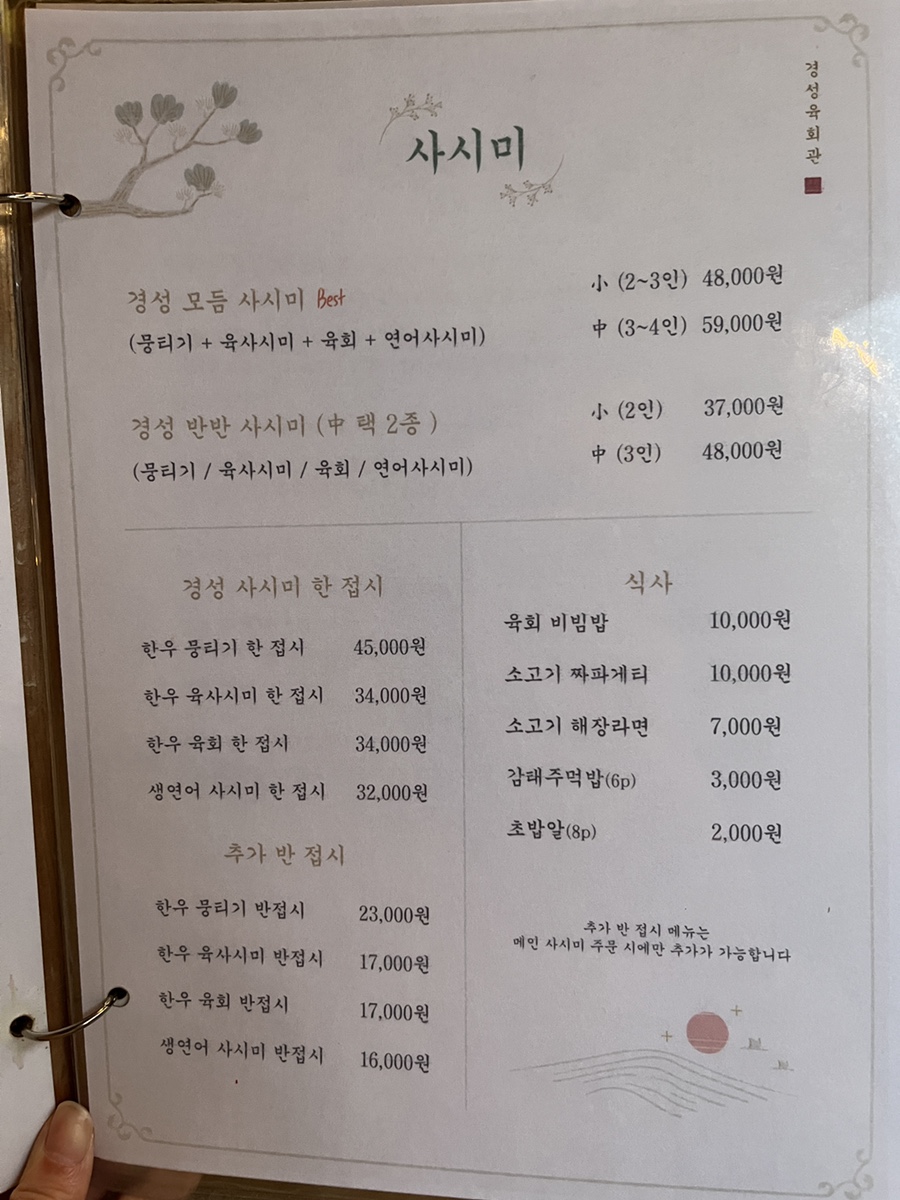 경성육회관
사시미
경성 모듬 사시미 Best
小 (2~3인) 48,000원
(뭉티기 + 육사시미 + 육회 + 연어사시미)
中 (3~4인) 59,000원
경성 반반 사시미 (中 택 2종 )
小 (2인) 37,000원
(뭉티기 / 육사시미 / 육회 / 연어사시미)
中 (3인) 48,000원
경성 사시미 한 접시
한우 뭉티기 한 접시 45,000원
한우 육사시미 한 접시 34,000원
한우 육회 한 접시 34,000원
생연어 사시미 한 접시 32,000원
추가 반 접시
한우 뭉티기 반접시 23,000원
한우 육사시미 반접시 17,000원
한우 육회 반접시 17,000원
생연어 사시미 반접시 16,000원
식사
육회 비빔밥 10,000원
소고기 짜파게티 10,000원
소고기 해장라면 7,000원
감태주먹밥(6p) 3,000원
초밥알(8p) 2,000원
추가 반 접시 메뉴는
메인 사시미 주문 시에만 추가가 가능합니다